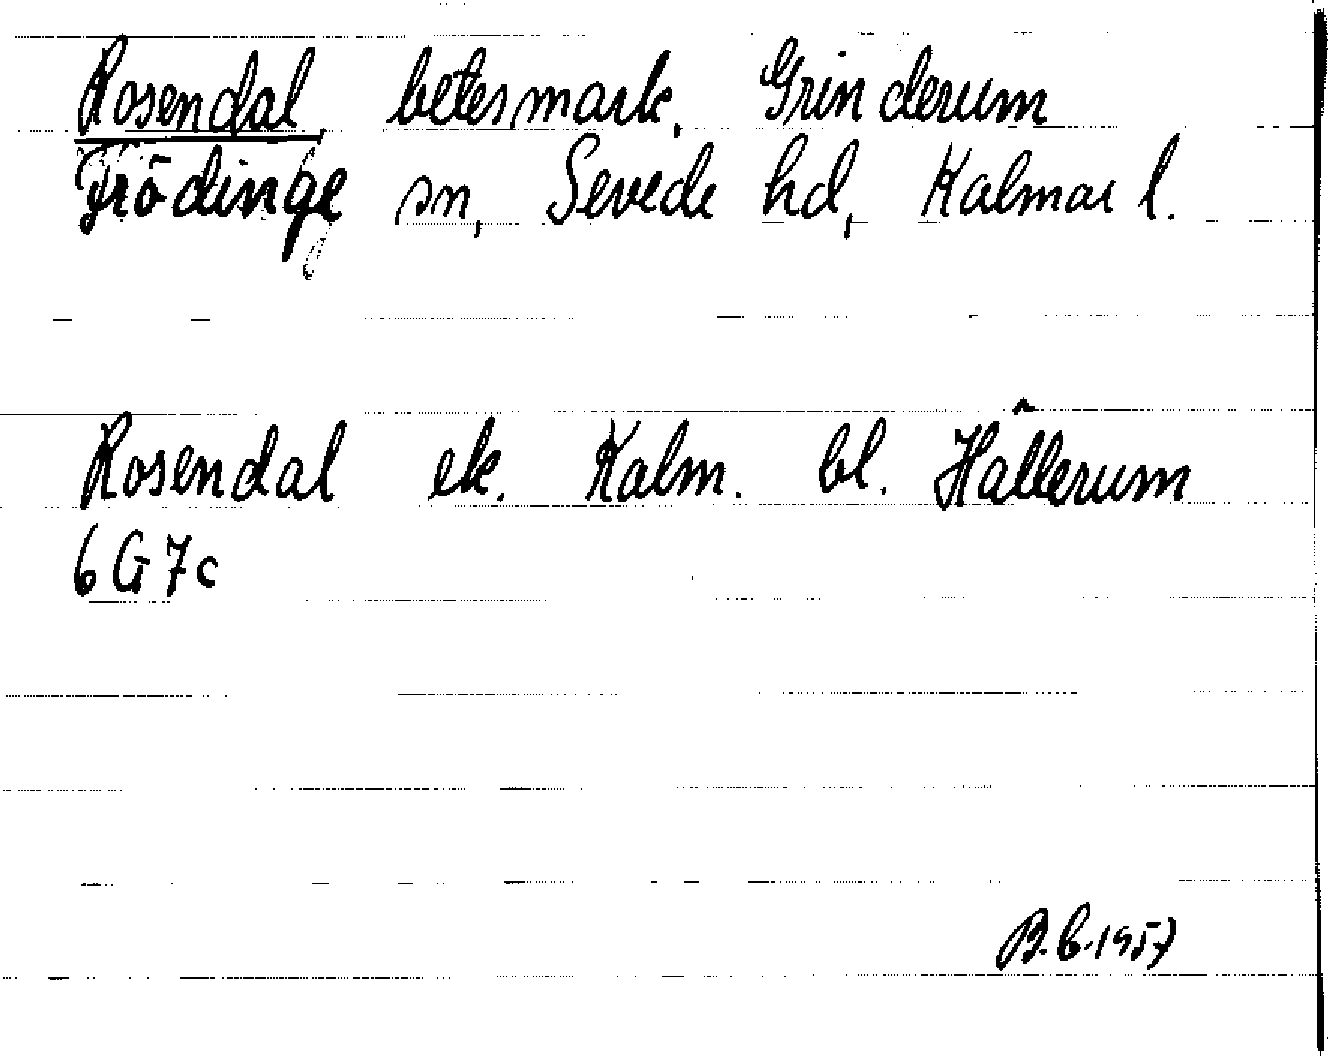 Rosendal, betesmark, Grinderum
Frödinge sn, Sevede hd, Kalmar l.
Rosendal ek. Kalm. bl. Hållerum
6G7c
B.G. 1957